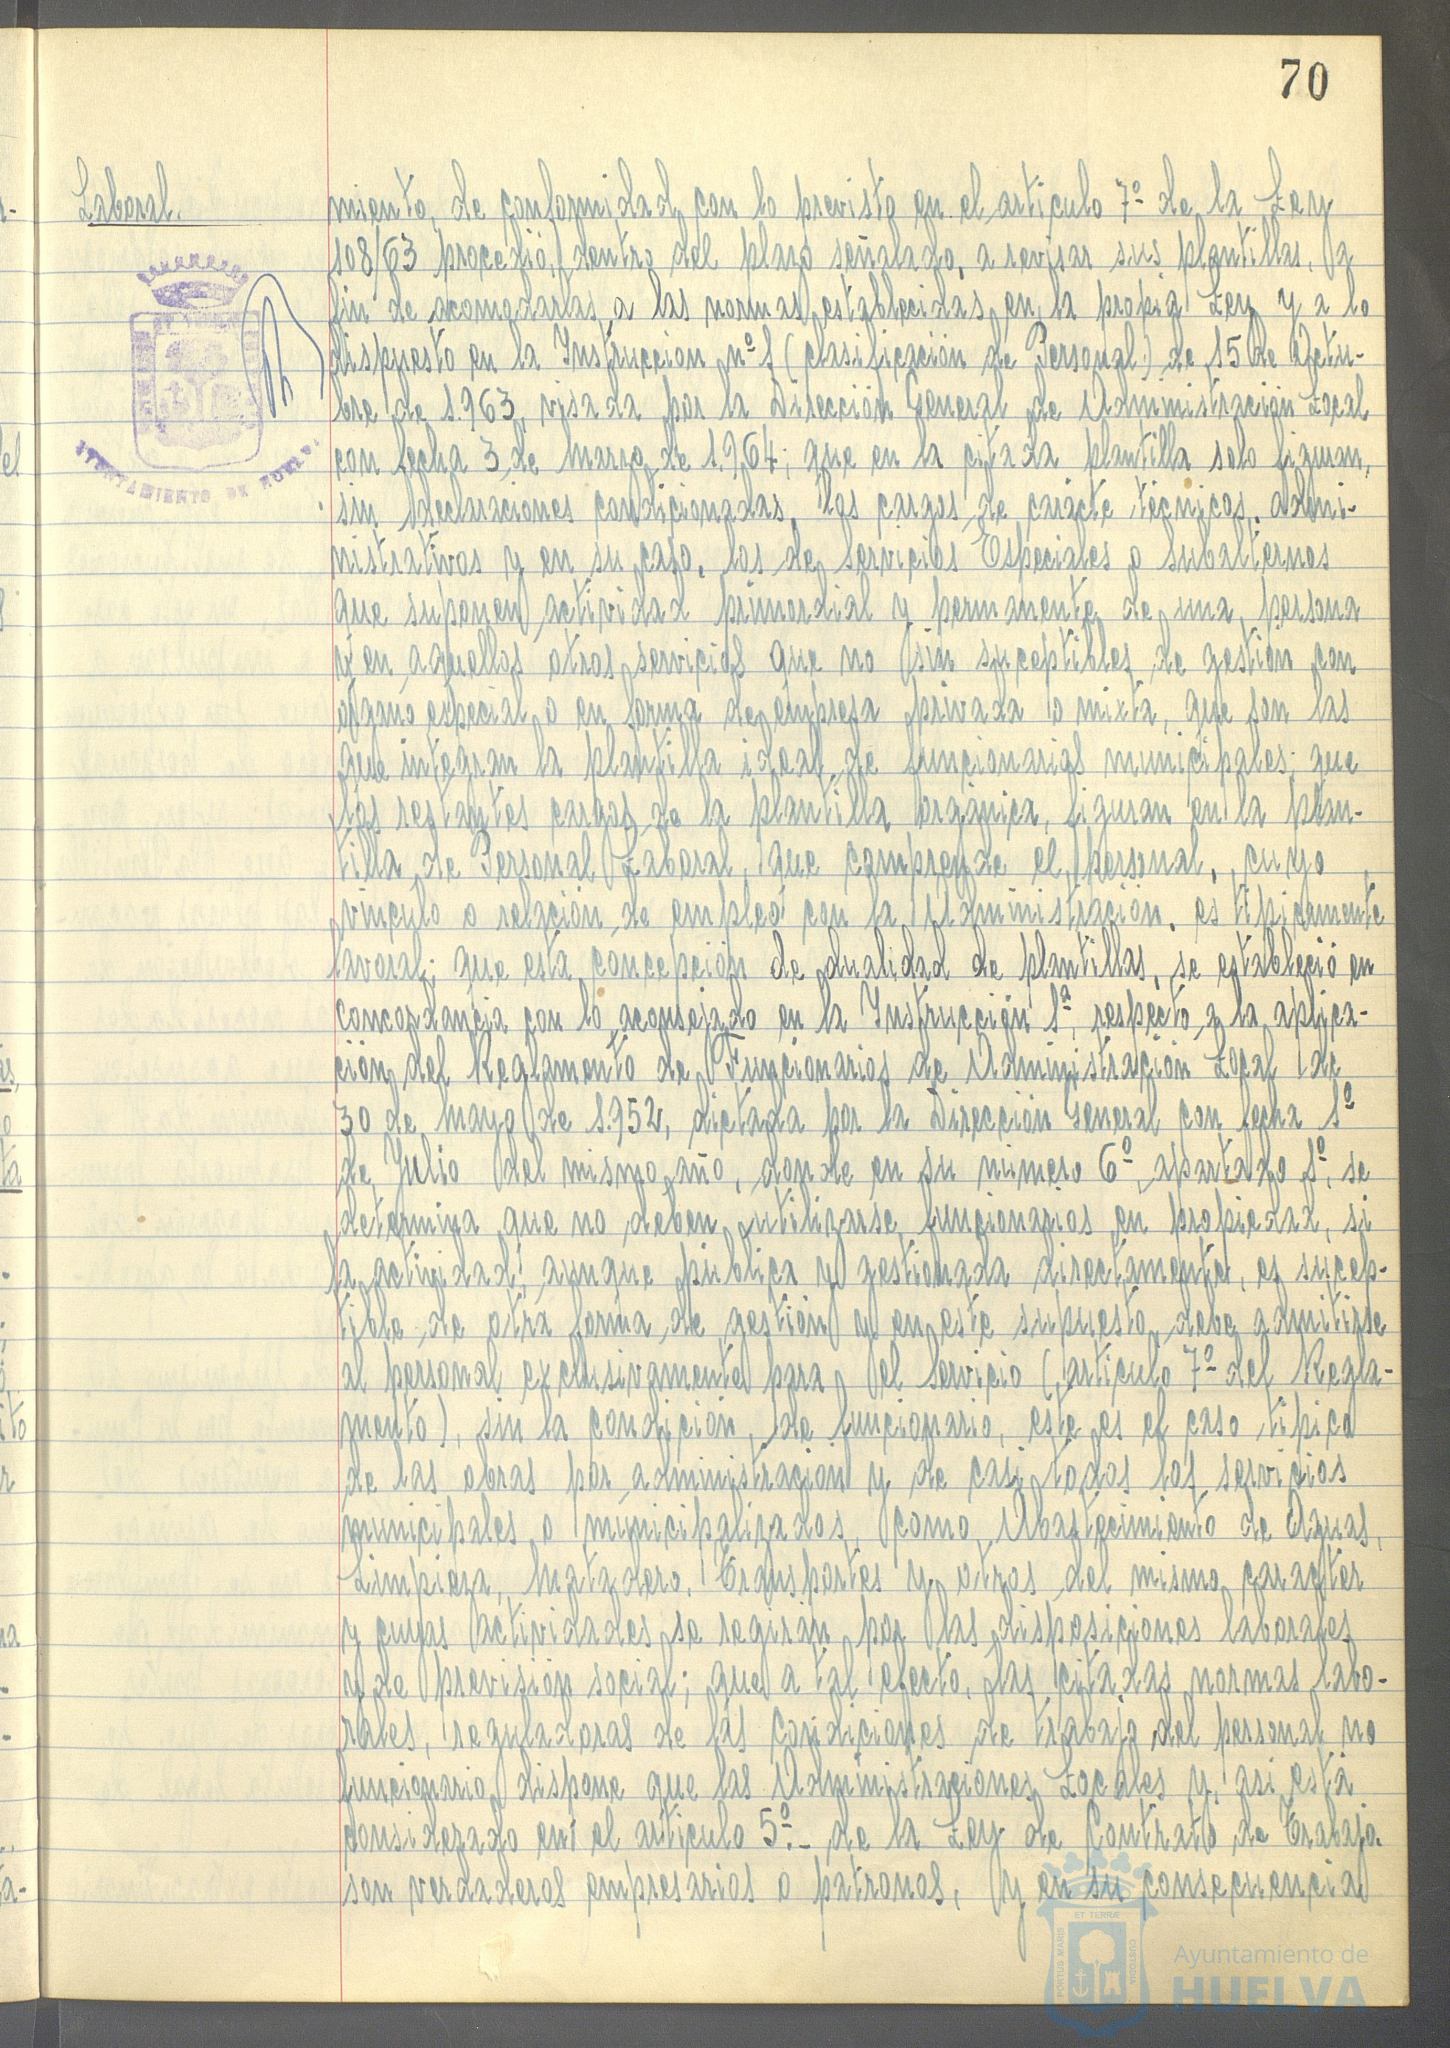 70
Laboral.
miento, de conformidad con lo previsto en el artículo 7º de la Ley
108/63 procedió, dentro del plazo señalado, a revisar sus plantillas, a
fin de acomodarlas a las normas establecidas en la propia Ley y a lo
dispuesto en la Instrucción nº 1 (clasificación de Personal) de 15 de Octu-
bre de 1.963, visada por la Dirección General de Administración Local
con fecha 3 de Marzo de 1.964; que en la citada plantilla solo figuran,
sin declaraciones condicionadas, los cargos de carácte técnicos, admi-
nistrativos y en su caso, los de Servicios Especiales o Subalternos
que suponen actividad primordial y permanente de una persona
y en aquellos otros servicios que no sin suceptibles de gestión con
órgano especial o en forma de empresa privada o mixta, que son las
que integran la plantilla ideal de funcionarios municipales; que
los restantes cargos de la plantilla orgánica, figuran en la plan-
tilla de Personal Laboral, que comprende el personal, cuyo
vínculo o relación de empleo con la Administración, es típicamente
lavoral; que esta concepción de dualidad de plantillas, se estableció en
concordancia con lo aconsejado en la Instrucción 1ª, respecto a la aplica-
ción del Reglamento de Funcionarios de Administración Local de
30 de Mayo de 1.952, dictada por la Dirección General con fecha 1º
de Julio del mismo año, donde en su número 6º, apartado 1º, se
determina que no deben utilizarse funcionarios en propiedad, si
la actividad, aunque pública y gestionada directamente, es sucep-
tible de otra forma de gestión y en este supuesto debe admitirse
al personal exclusivamente para el Servicio (artículo 7º del Regla-
mento), sin la condición de funcionario, este es el caso típico
de las obras por administración y de casi todos los servicios
municipales o municipalizados, como Abastecimiento de Aguas,
Limpieza, Matadero, Transportes y otros del mismo carácter
y cuyas actividades se regirán por las disposiciones laborales
y de previsión social; que a tal efecto, las citadas normas labo-
rales, reguladoras de las condiciones de trabajo del personal no
funcionario dispone que las Administraciones Locales y, así está
considerado en el artículo 5º.- de la Ley de Contrato de Trabajo
son verdaderos empresarios o patronos, y en su consecuencia
AYUNTAMIENTO DE HUELVA
PORTUS MARIS ET TERRÆ CUSTODIA
Ayuntamiento de
HUELVA